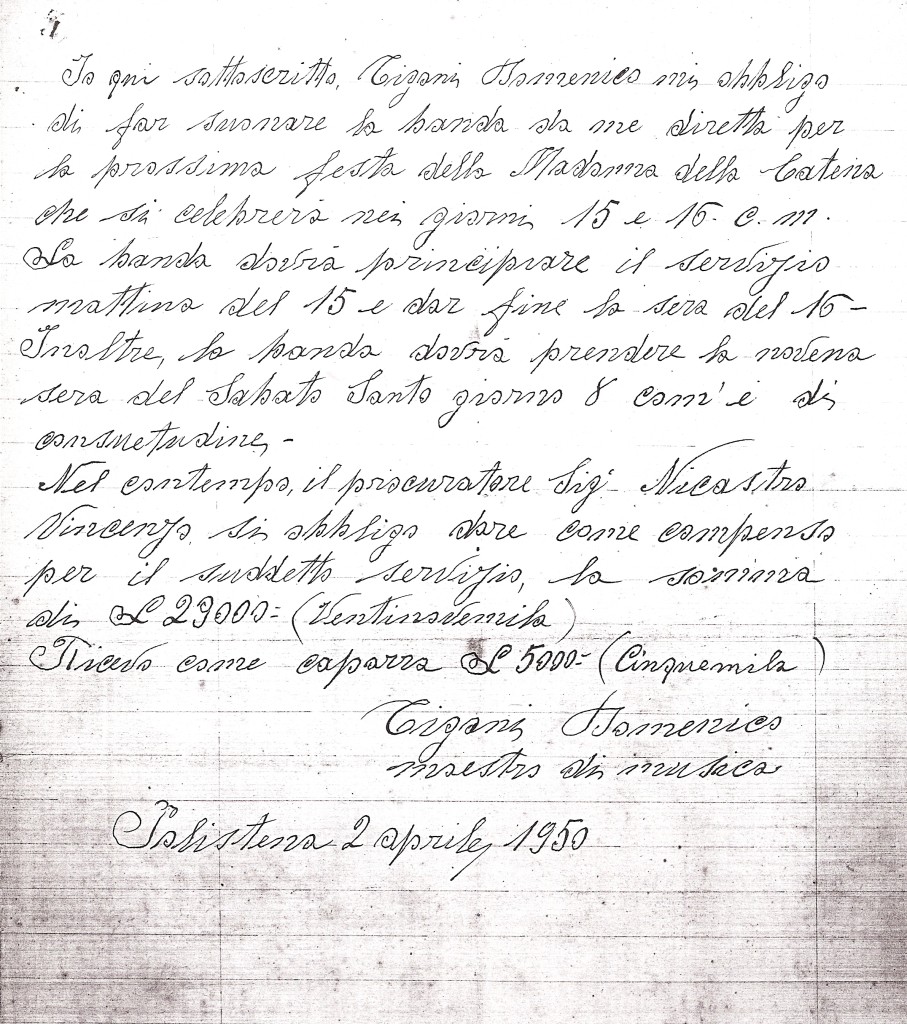 Io qui sottoscritto, Tigani Domenico mi obbligo
di far suonare la banda da me diretta per
la prossima festa della Madonna della Catena
che si celebrerà nei giorni 15 e 16 c. m.
La banda dovrà principiare il servizio
mattina del 15 e dar fine la sera del 16 -
Inoltre, la banda dovrà prendere la novena
sera del Sabato Santo giorno 8 com'è di
consuetudine, -
Nel contempo, il procuratore Sig. Nicastro
Vincenzo, si obbliga dare come compenso
per il suddetto servizio, la somma
di £ 29000= (Ventinovemila)
Ricevo come caparra £ 5000= (Cinquemila)
Tigani Domenico
maestro di musica
Polistena 2 aprile, 1950